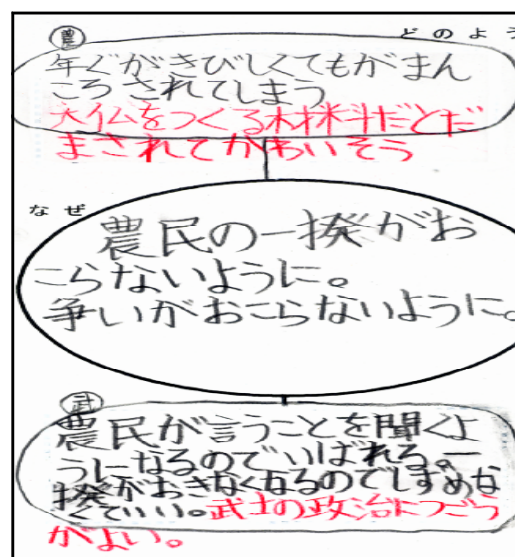 どのよう
農
年ぐがきびしくてもがまん
ころされてしまう
大仏をつくる木材料だとだ
まされてかわいそう
なぜ
農民の一揆がお
こらないように。
争いがおこらないように。
武
農民が言うことを聞くよ
うになるのでいばれる。一
揆がおきなくなるのでしずめな
くていい。武士の政治につごう
がよい。